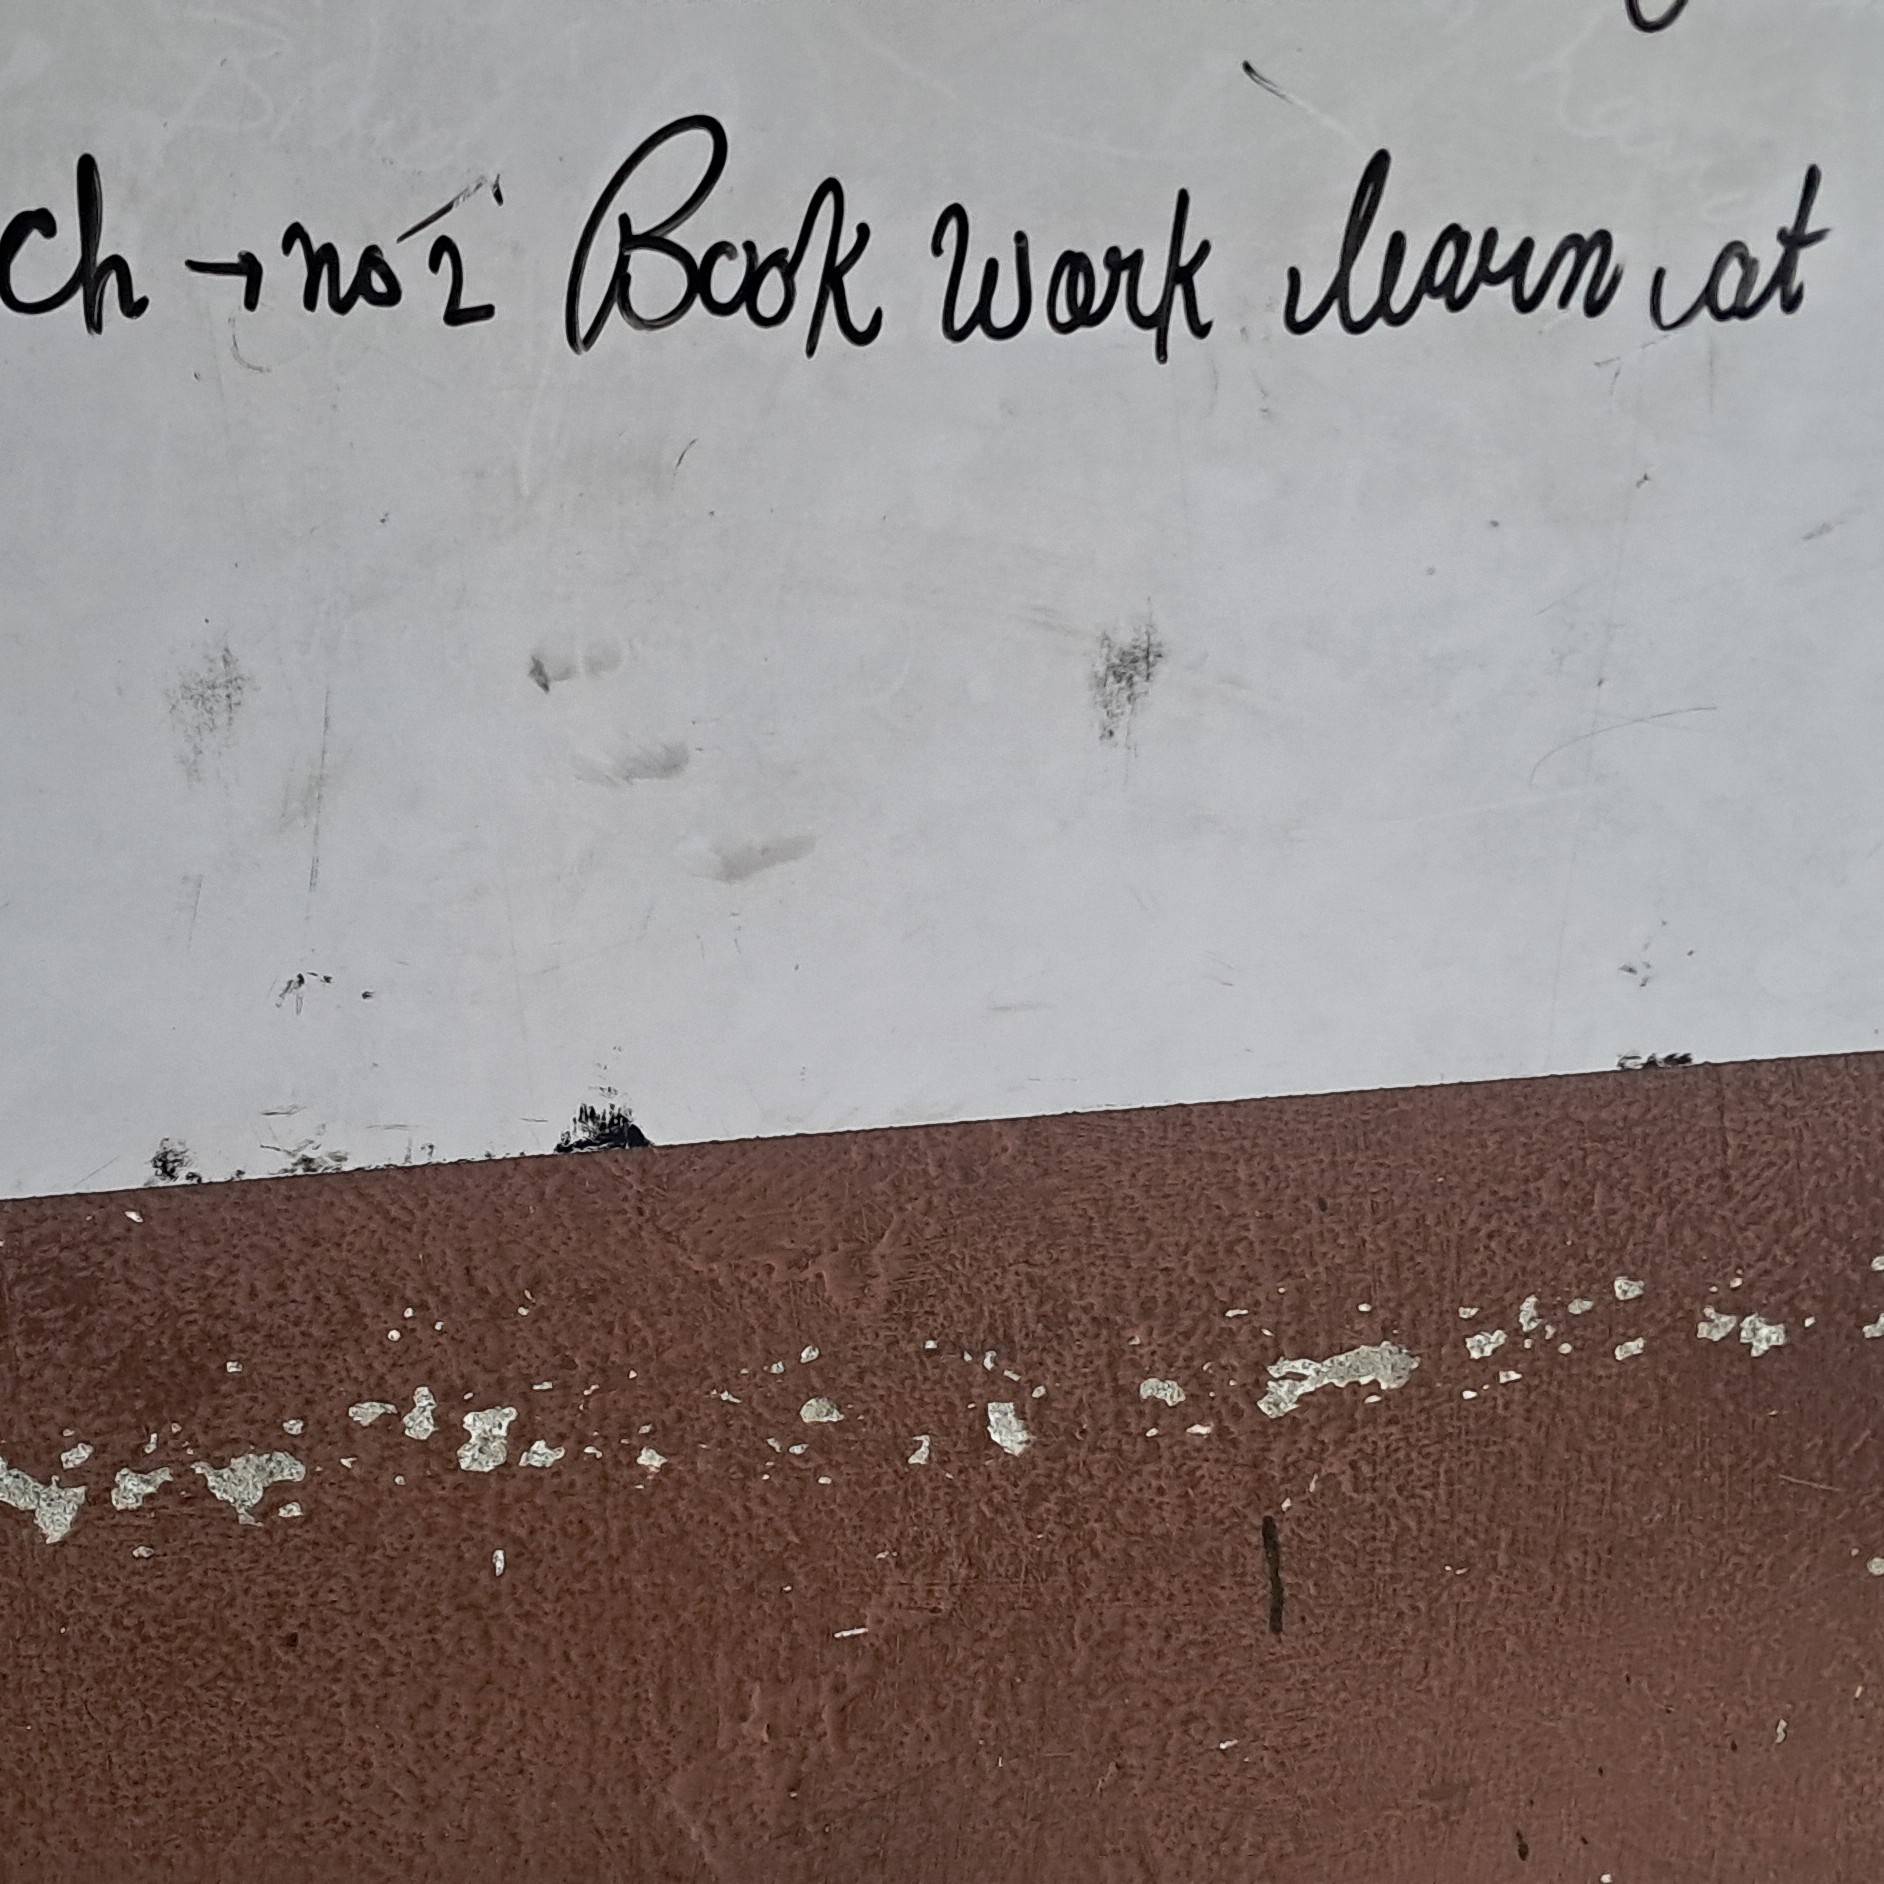 Ch → no 2 Book Work learn at